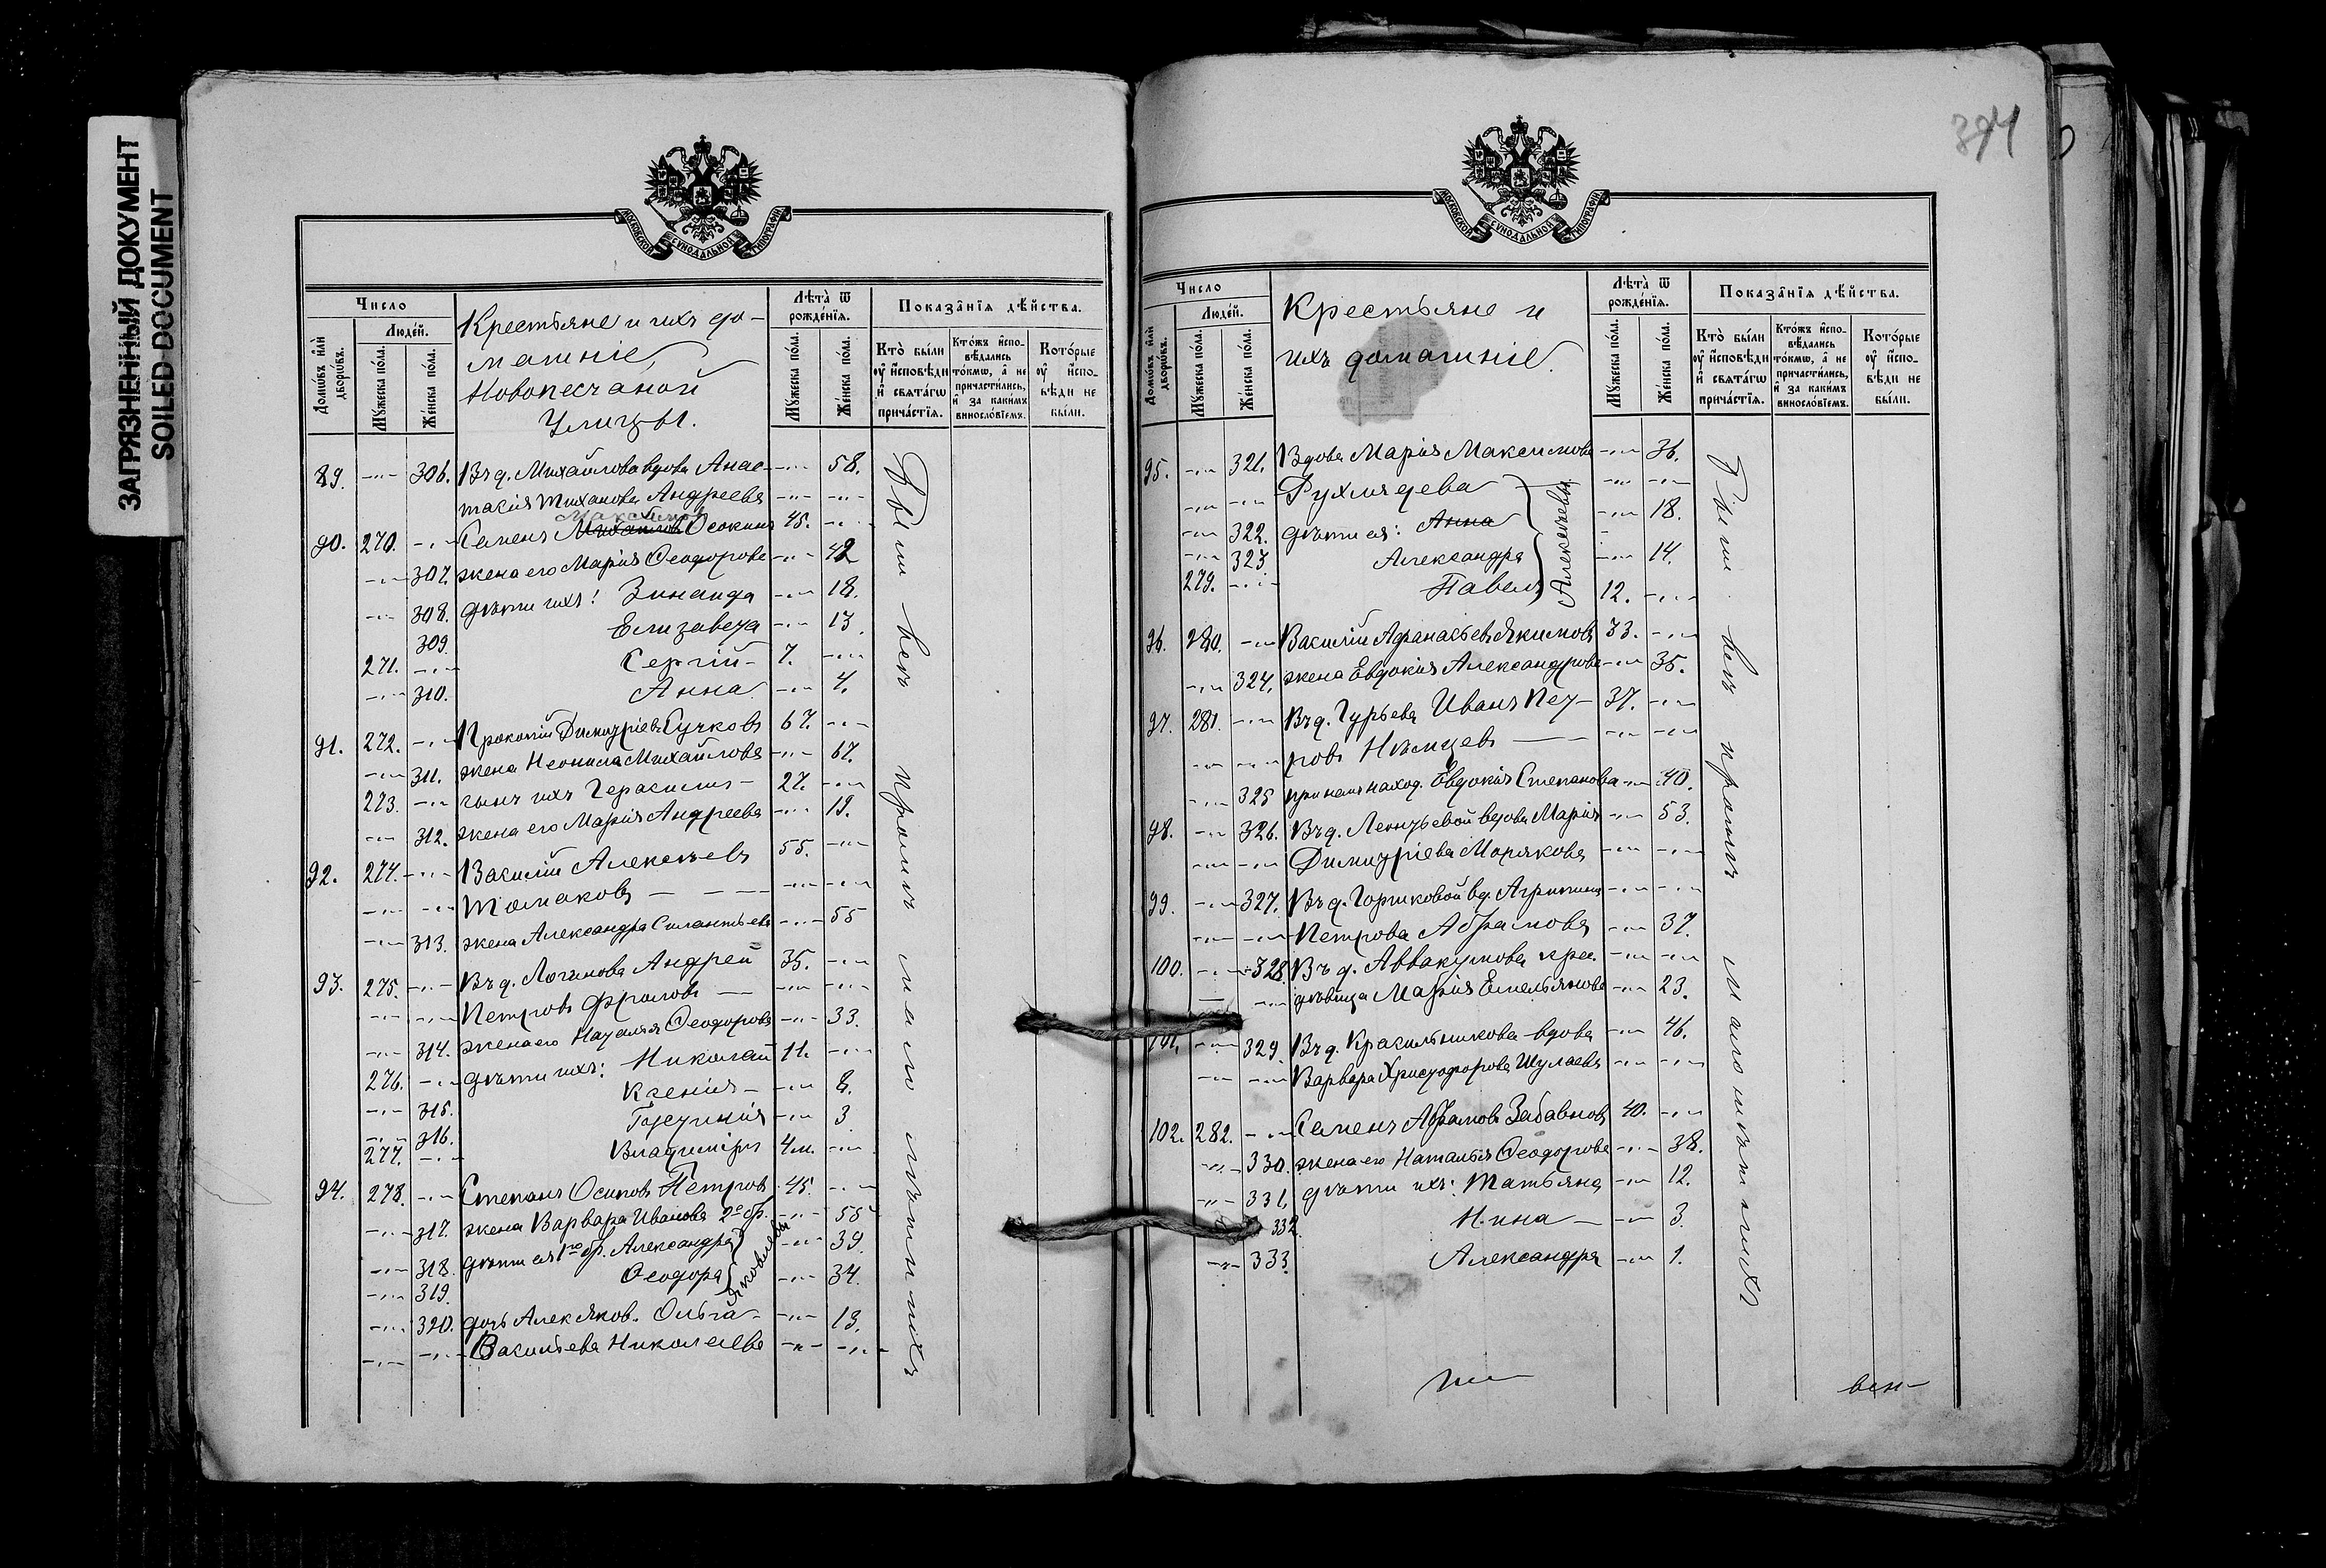 ЗАГРЯЗНЕННЫЙ ДОКУМЕНТ
SOILED DOCUMENT
394
МОСКОВСКОЙ СѴНОДАЛЬНОЙ ТИПОГРАФІИ
Число
Людей.
Домовъ или дворовъ.
Мужеска пола.
Женска пола.
Крестьяне и ихъ до-
машніе
Новопесчаной
Улицы.
Лѣта ѿ рожденія.
Мужеска пола.
Женска пола.
Показанія дѣйства.
Кто были у исповѣди и святагѡ причастія.
Ктожъ исповѣдались токмѡ, а не причастились, и за какимъ винословіемъ.
Которые у исповѣди не были.
89. -"- 306. Въ д. Михайлова вдова Анас- -"- 58.
тасія Андреева -"- -"-
Максимов
90. 270. -"- Семенъ Михайловъ Осокинъ 45. -"-
-"- 307. жена его Марія Ѳеодорова -"- 42
-"- 308. дѣти ихъ: Зинаида -"- 18.
309. Елизавета -"- 13.
271. -"- Сергій - 7. -"-
-"- 310. Анна -"- 4.
91. 272. -"- Прокопій Димитріевъ Сучковъ 67. -"-
-"- 311. жена Неонила Михайлова -"- 67.
273. -"- сынъ ихъ Герасимъ - 27. -"-
-"- 312. жена его Марія Андреева -"- 19.
92. 274. -"- Василій Алексѣевъ 55. -"-
-"- -"- Томаковъ -"- -"-
-"- 313. жена Александра Силантьева -"- 55
93. 275. -"- Въ д. Логинова Андрей 35. -"-
-"- -"- Петровъ Фроловъ -"- -"-
-"- 314. жена его Наталія Ѳеодорова -"- 33.
276. -"- дѣти ихъ: Николай 11. -"-
-"- 315. Ксенія - -"- 8.
-"- 316. -"- 3
277. -"- Владиміръ 4м. -"-
94. 278. -"- Степанъ Осиповъ Петровъ 45. -"-
-"- 317. жена Варвара Иванова 2го бр. -"- 55
-"- 318. дѣти ея 1го бр. Александра -"- 39.
-"- 319. Ѳеодора -"- 34.
Яковлевы
-"- 320. дочь Алек. Яков. Ольга -"- 13.
-"- -"- Васильева Николаева -"- -"-
Были всѣ кромѣ малолѣтнихъ
МОСКОВСКОЙ СѴНОДАЛЬНОЙ ТИПОГРАФІИ
Число
Людей.
Домовъ или дворовъ.
Мужеска пола.
Женска пола.
Крестьяне и
ихъ домашніе.
Лѣта ѿ рожденія.
Мужеска пола.
Женска пола.
Показанія дѣйства.
Кто были у исповѣди и святагѡ причастія.
Ктожъ исповѣдались токмѡ, а не причастились, и за какимъ винословіемъ.
Которые у исповѣди не были.
95. -"- 321. Вдова Марія Максимова -"- 36.
-"- Рухлядева -"- -"-
-"- 322. дѣти ея: Анна -"- 18.
-"- 323 Александра -"- 14.
279. -"- Павелъ 12. -"-
Алексѣевы
96. 280. -"- Василій Аѳанасьевъ Якимовъ 33. -"-
-"- 324. жена Евдокія Александрова -"- 35.
97. 281. -"- Въ д. Гурьева Иванъ Пет- 37. -"-
-"- -"- ровъ Нѣмцевъ -"- -"-
-"- 325 при немъ наход. Евдокія Степанова -"- 40.
98. -"- 326. Въ д. Леонтьевой вдова Марія -"- 53.
-"- -"- Димитріева Морякова -"- -"-
99. -"- 327. Въ д. Горшковой вд. Агрипина -"- -"-
-"- -"- Петрова Абрамова -"- 37.
100. -"- 328. Въ д. Аввакумова крес. -"- -"-
-"- дѣвица Марія Емельянова -"- 23.
101. -"- 329. Въ д. Красильникова вдова -"- 46.
-"- -"- Варвара Христофорова Шулаева -"- -"-
102. 282. -"- Семенъ Абрамовъ Забавновъ 40. -"-
-"- 330. жена его Наталья Ѳеодорова -"- 38.
-"- 331. дѣти ихъ: Татьяна -"- 12.
332. Нина -"- 3.
-"- 333. Александра -"- 1.
Были всѣ кромѣ малолѣтнихъ